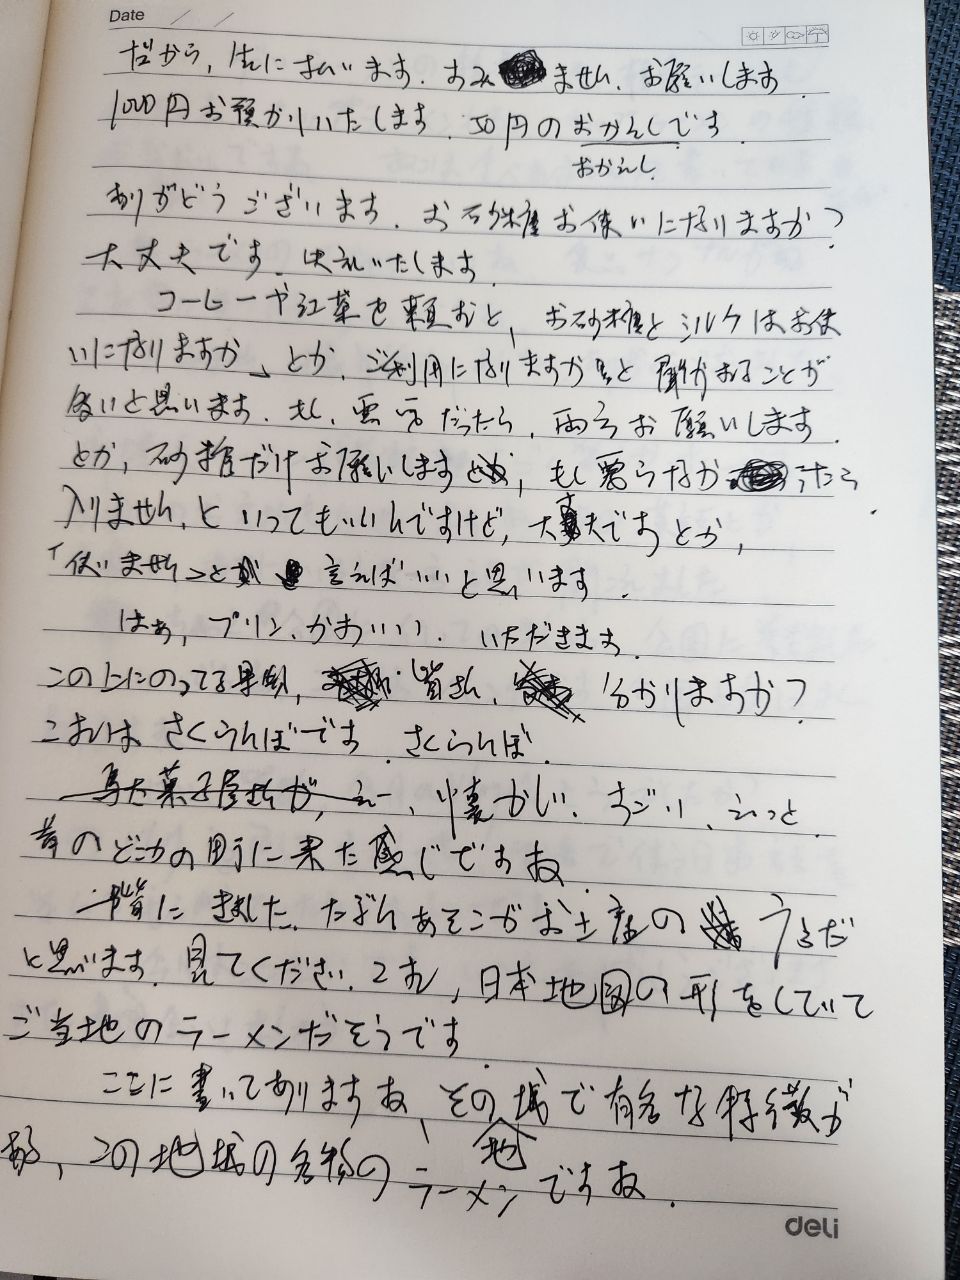 Date / /
だから, 先に払います. すみ ません. お願いします.
1000円お預かりいたします. 50円のおかえしです
おかえし
ありがどうございます. お砂糖お使いになりますか?
大丈夫です. 失礼いたします.
コーヒーや紅茶を頼むと, お砂糖とシルクはお使
いになりますか」とか, ご利用になりますか と 聞かれることが
多いと思います. もし, 要る だったら, 両方お願いします.
とか, 砂糖だけお願いします とか, もし要らなか ったら
入りません, と いってもいいんですけど, 大丈夫です とか,
「使いません」とか 言えばいいと思います.
はあ, プリン, かわいい. いただきます.
この上にのってる果物, 皆さん, 分かりますか?
これは さくらんぼです. さくらんぼ.
えー, 懐かし. すごい, えっと.
昔のどこかの町に来た感じですね.
一階に きました. たぶん あそこが お土産の うるだ
と思います. 見てください. これ, 日本地図の形をしていて
ご当地のラーメンだそうです.
ここに書いてありますね, その地域で有名な特徴が
ある, この地域の名物のラーメンですね.
deli